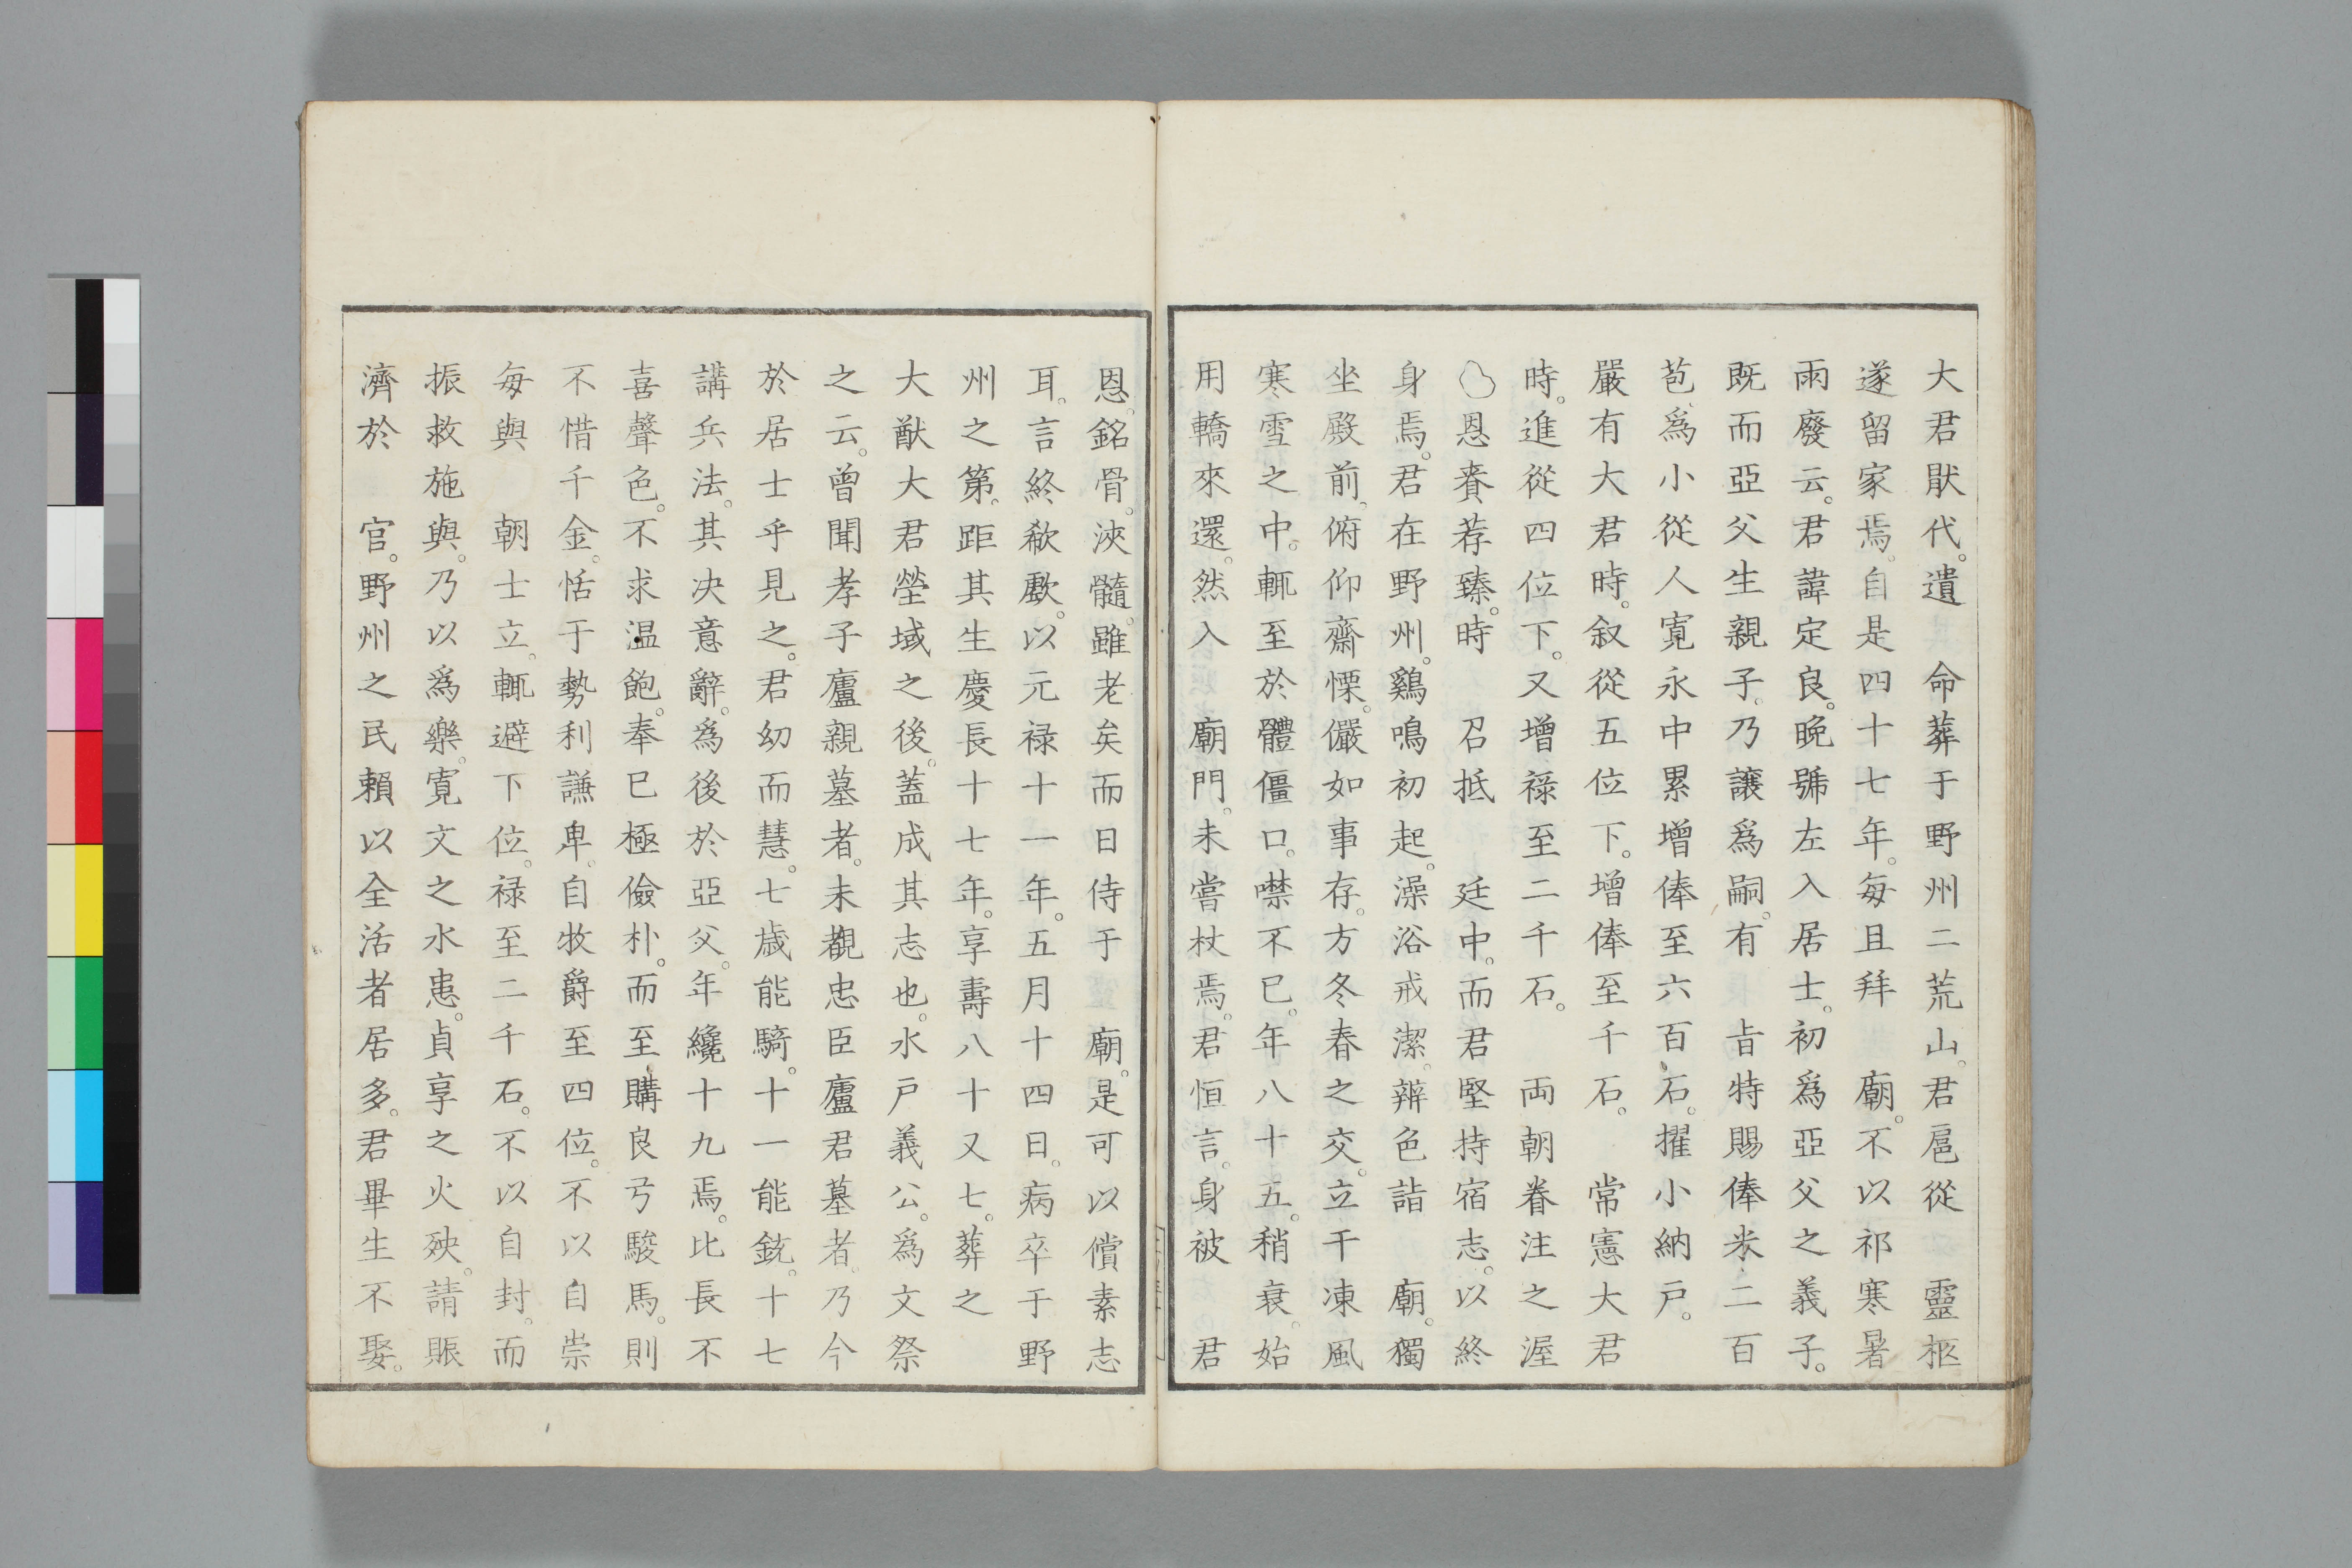 大君猒代。遺　命葬于野州二荒山。君扈從　靈柩
遂留家焉。自是四十七年。每旦拜　廟。不以祁寒暑
雨廢云。君諱定良。晚號左入居士。初爲亞父之義子。
既而亞父生親子。乃讓爲嗣。有　㫖特賜俸米二百
苞、爲小從人寬永中累增俸至六百石。擢小納戸。
嚴有大君時。叙從五位下。增俸至千石。　常憲大君
時。進從四位下。又增禄至二千石。　両朝眷注之渥
恩賚荐臻。時　召抵　廷中。而君堅持宿志。以終
身焉。君在野州。鷄鳴初起。澡浴戒潔。辨色詣　廟。獨
坐殿前。俯仰齋慄。儼如事存。方冬春之交。立于凍風
寒雪之中。輒至於體僵口。噤不已。年八十五。稍衰。始
用轎來還。然入　廟門。未嘗杖焉。君恒言。身被　君
恩。銘骨。浹髓。雖老矣而日侍于　廟。是可以償素志
耳。言終欷歔。以元禄十一年。五月十四日。病卒于野
州之第。距其生慶長十七年。享壽八十又七。葬之
大猷大君塋域之後。蓋成其志也。水戸義公。爲文祭
之云。曾聞孝子廬親墓者。未覩忠臣廬君墓者。乃今
於居士乎見之。君幼而慧。七歳能騎。十一能銃。十七
講兵法。其决意辭。爲後於亞父。年纔十九焉。比長不
喜聲色。不求温飽。奉已極儉朴。而至購良弓駿馬。則
不惜千金。恬于勢利謙卑。自牧爵至四位。不以自崇
每與　朝士立。輒避下位。禄至二千石。不以自封。而
振救施與。乃以爲樂。寬文之水患。貞享之火殃。請賑
濟於　官。野州之民賴以全活者居多。君畢生不娶。